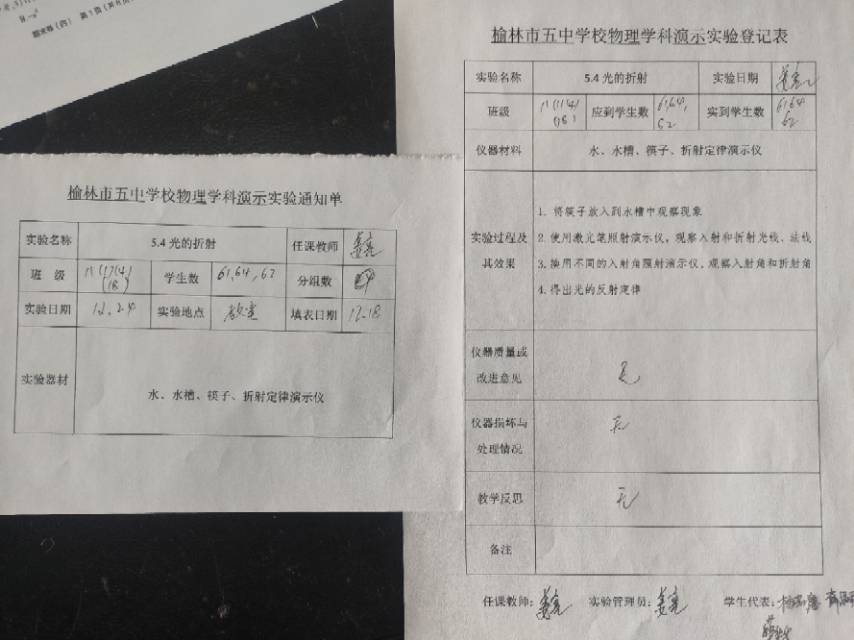 期末卷(四) 第1页(共8页
榆林市五中学校物理学科演示实验通知单
实验名称 5.4 光的折射 任课教师 姜亮
班 级 学生数 61,64,62 分组数
实验日期 12.24 实验地点 教室 填表日期 12.18
实验器材 水、水槽、筷子、折射定律演示仪
榆林市五中学校物理学科演示实验登记表
实验名称 5.4 光的折射 实验日期
班级 应到学生数 61,64, 62 实到学生数 61,64 62
仪器材料 水、水槽、筷子、折射定律演示仪
实验过程及其效果
1. 将筷子放入到水槽中观察现象
2. 使用激光笔照射演示仪，观察入射和折射光线、法线
3. 换用不同的入射角照射演示仪，观察入射角和折射角
4. 得出光的反射定律
仪器质量或改进意见 无
仪器损坏与处理情况 无
教学反思 无
备注
任课教师：姜亮 实验管理员：姜亮 学生代表：